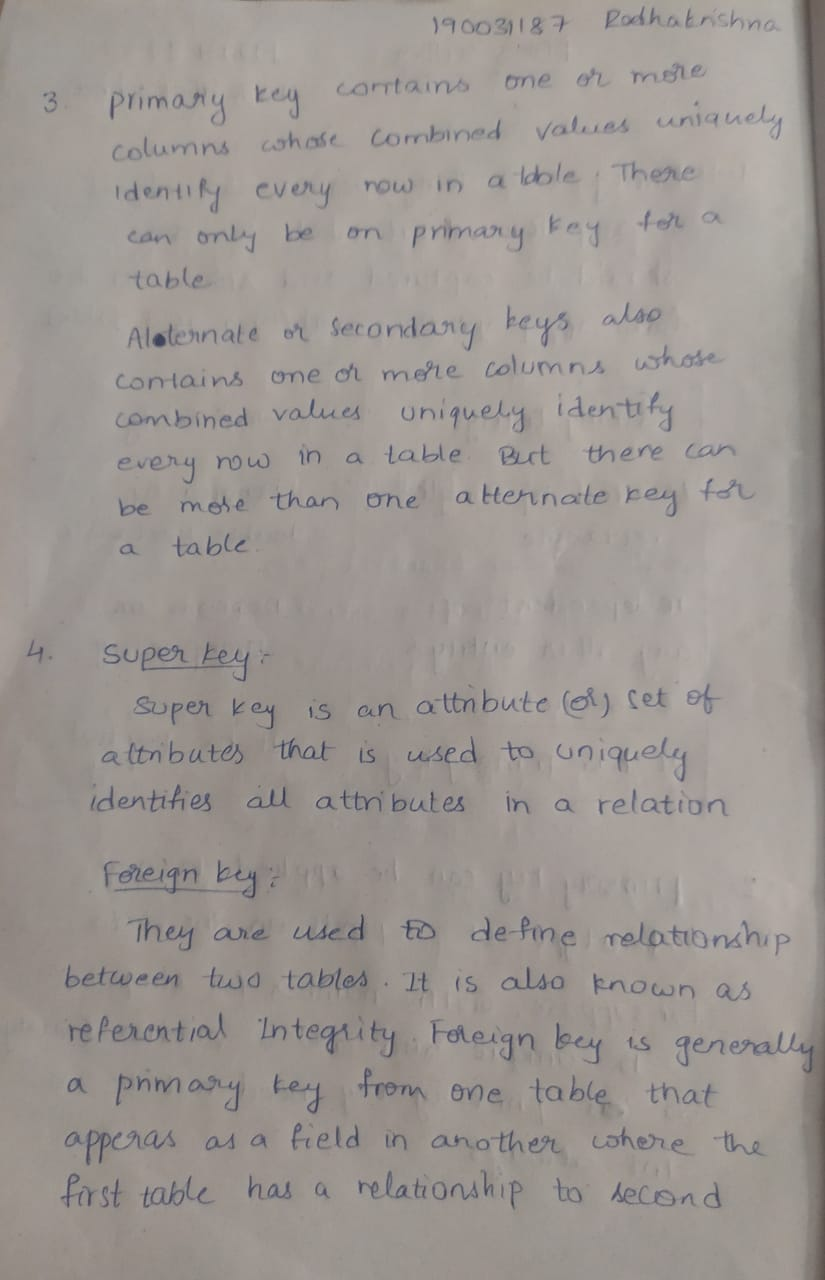 190031187 Radhakrishna
3. primary key contains one or more
columns whose combined values uniquely
identify every row in a table. There
can only be on primary key for a
table
Alternate or secondary keys also
contains one or more columns whose
combined values uniquely identify
every row in a table But there can
be more than one alternate key for
a table.
4. Super key :-
Super key is an attribute (or) set of
attributes that is used to uniquely
identifies all attributes in a relation
Foreign key :-
They are used to define relationship
between two tables. It is also known as
referential Integrity. Foreign key is generally
a primary key from one table that
apperas as a field in another where the
first table has a relationship to second